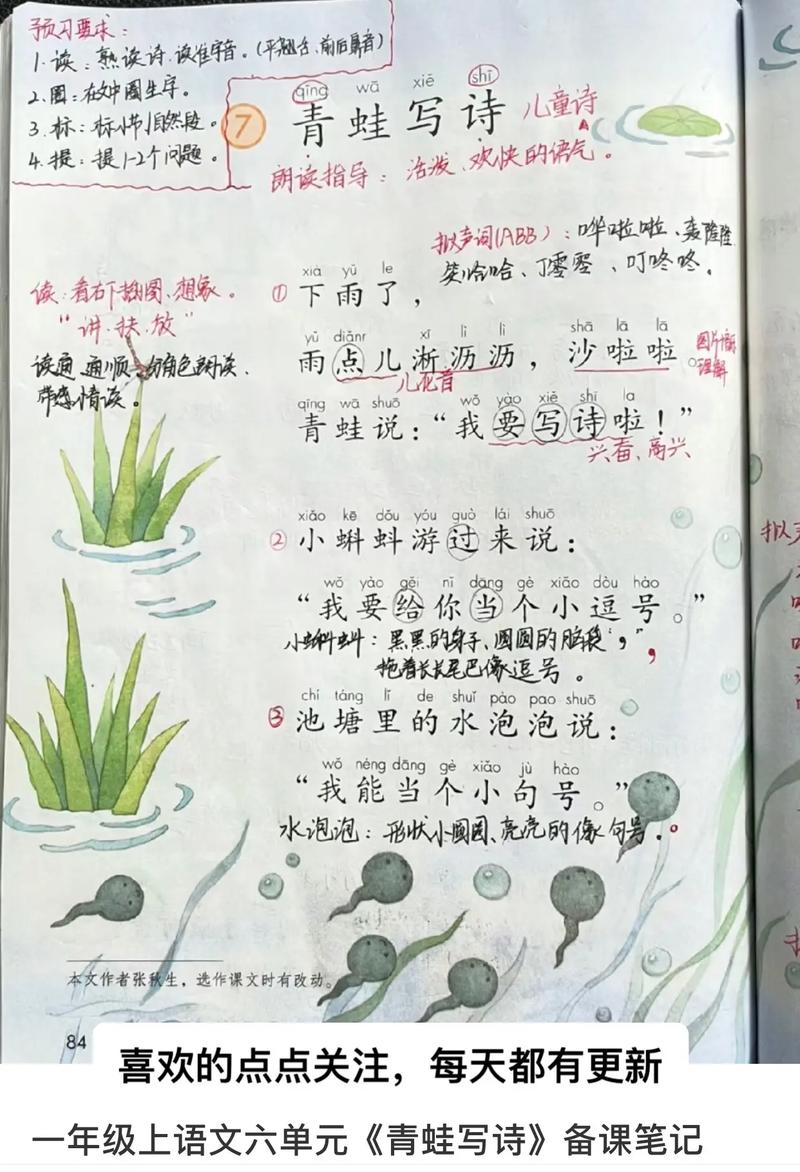 预习要求：
1.读：熟读诗、读准字音。(平翘舌、前后鼻音)
2.圈：在文中圈生字。
3.标：标小节/自然段。
4.提：提1-2个问题。
qīng wā xiě shī
7 青蛙写诗 儿童诗
朗读指导：活泼、欢快的语气。
拟声词(ABB)：哗啦啦、轰隆隆
笑哈哈、丁零零、叮咚咚。
读：看右下插图、想象。
"讲·扶·放"
读通、通顺、分角色朗读、
带感情读。
xià yǔ le
①下雨了，
yǔ diǎnr xī lì lì shā lā lā
雨点儿淅沥沥，沙啦啦。
儿化音
理解
qīng wā shuō wǒ yào xiě shī la
青蛙说：“我要写诗啦！”
兴奋、高兴
xiǎo kē dǒu yóu guò lái shuō
②小蝌蚪游过来说：
wǒ yào gěi nǐ dāng gè xiǎo dòu hào
“我要给你当个小逗号。”
小蝌蚪：黑黑的身子、圆圆的脑袋“，”，
拖着长长尾巴像逗号。
chí táng lǐ de shuǐ pào pao shuō
③池塘里的水泡泡说：
wǒ néng dāng gè xiǎo jù hào
“我能当个小句号。”
水泡泡：形状小圆圆、亮亮的像句号。。
本文作者张秋生，选作课文时有改动。
84
拟声
喜欢的点点关注，每天都有更新
一年级上语文六单元《青蛙写诗》备课笔记